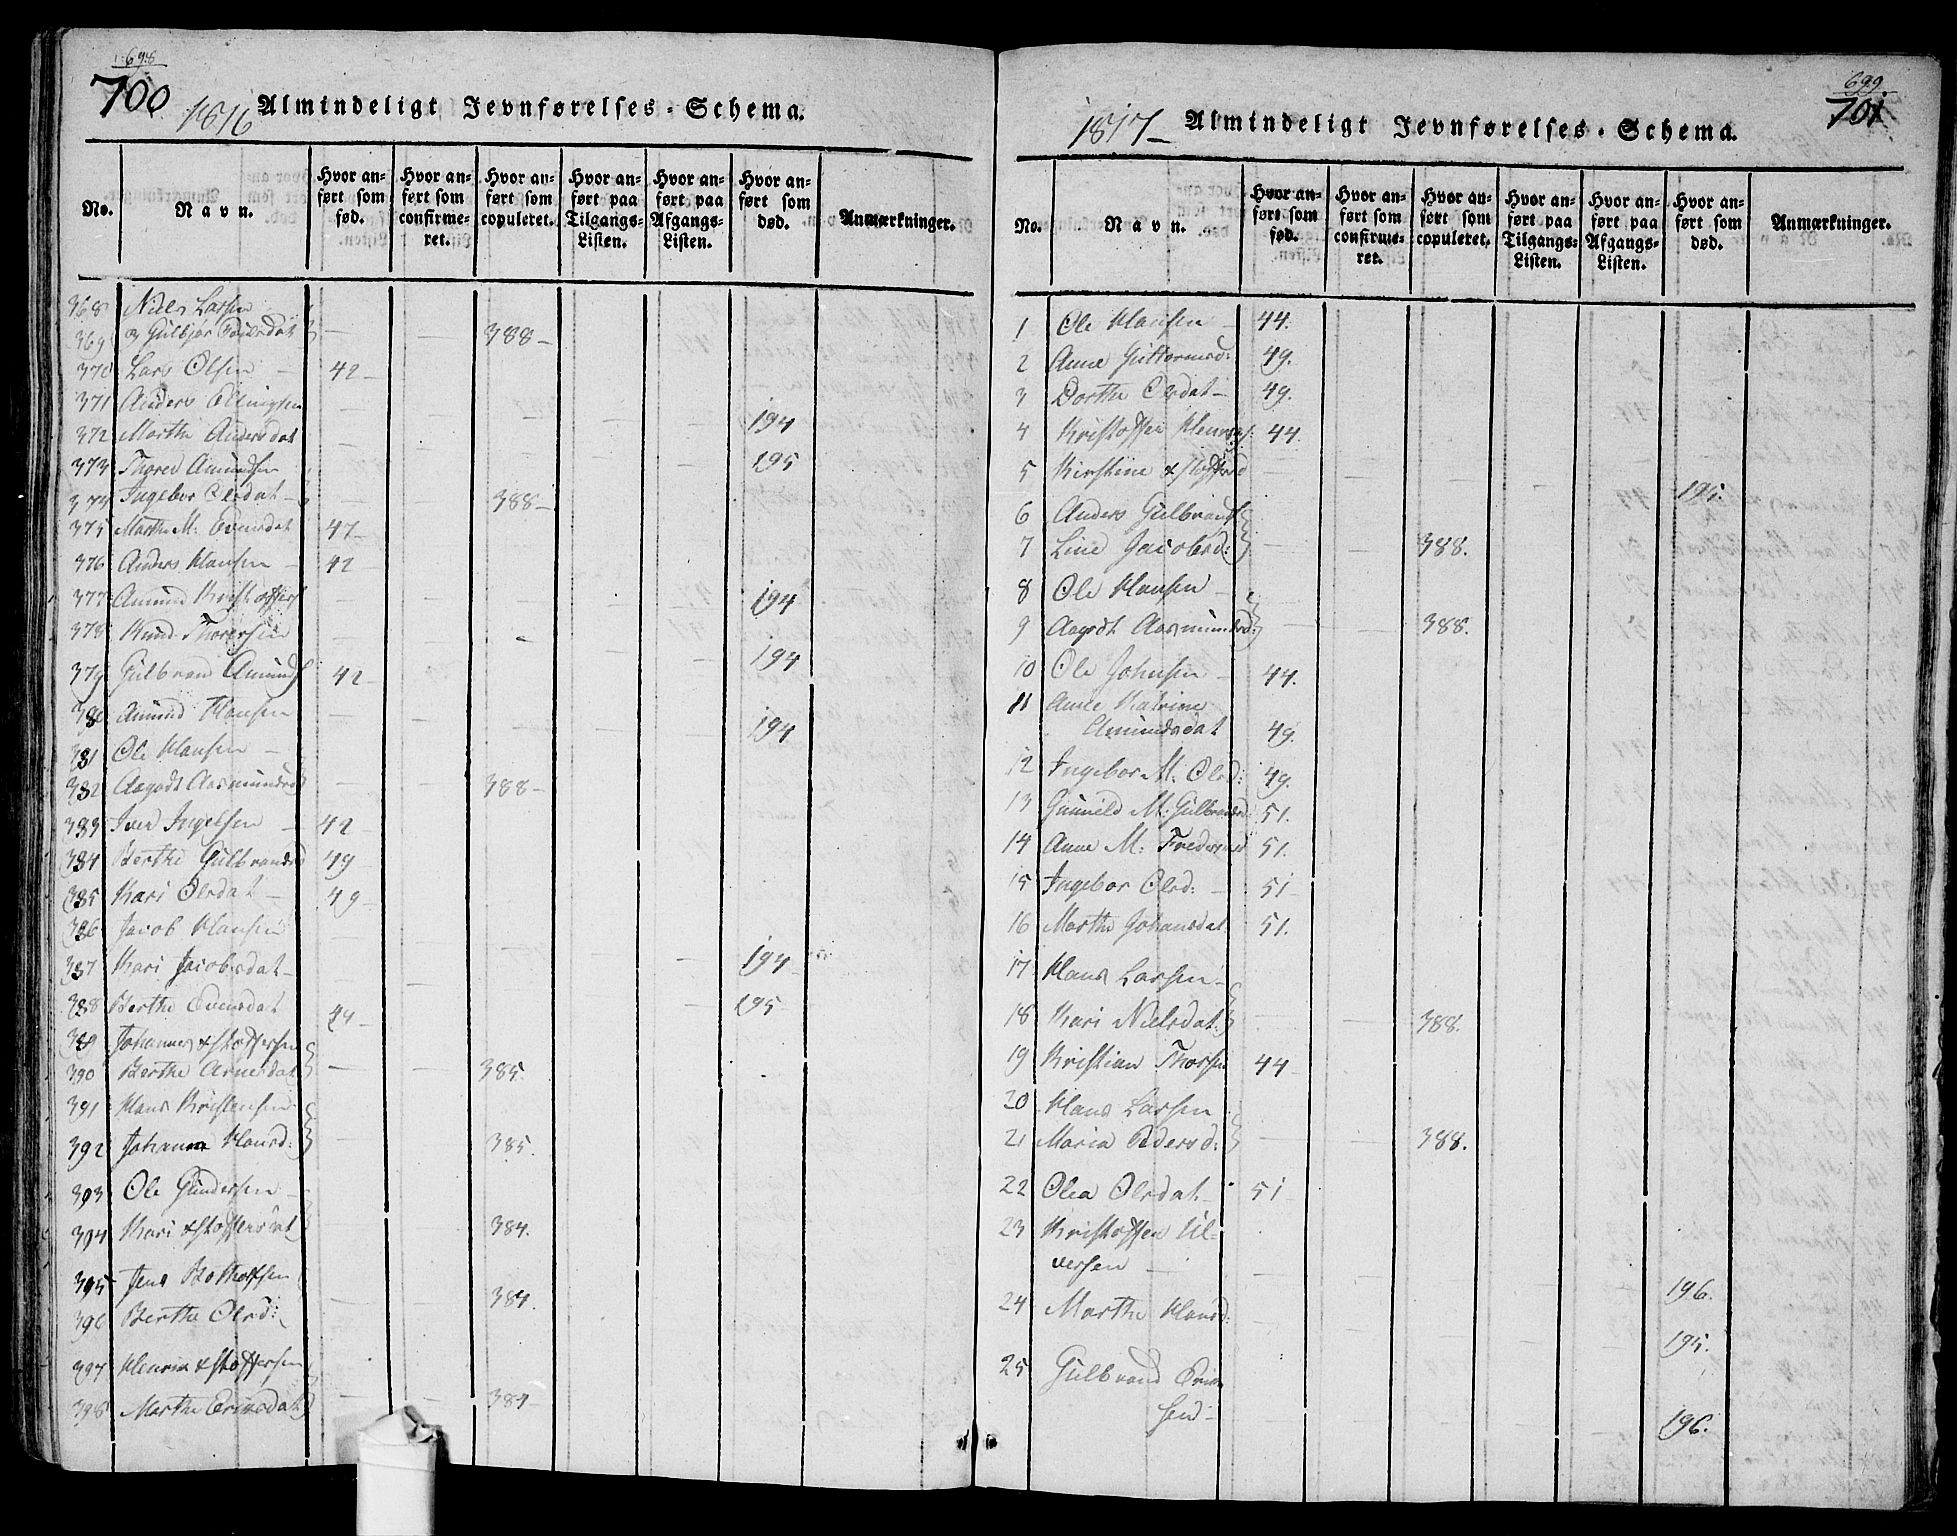 698
700.
1816
Almindeligt Jevnførelses-Schema.
No.
Navn.
Hvor anført som fød.
Hvor anført som confirmeret.
Hvor anført som copuleret.
Hvor anført paa Tilgangs-Listen.
Hvor anført paa Afgangs-Listen.
Hvor anført som død.
Anmærkninger.
368 Niels Larsen
369 og Gulbjør — 388 —
370 Lars Olsen — 42 —
371 Anders Ellingsen
372 Marthe Andersdat — 194
373 Thorer Amundsen 195
374 Ingebor Olsdat — 388 —
375 Marthe M: Evensdat 47 —
376 Anders Hansen — 42 —
377 Amund Kristoffers 194
378 Knud Thorersen
379 Gulbran Amunds 42 — 194
380 Amund Hansen 194
381 Ole Hansen —
382 Aagodt Aasmundsd 388 —
383 Iver Ingelsen — 42 —
384 Berthe Gulbrandsd 49
385 Kari Olsdat — 49 —
386 Jacob Hansen
387 Kari Jacobsdat — 194
388 Berthe Evensdat 195
389 Johannes Xstoffersen
390 Berthe Arnesdat — 385.
391 Hans Kristensen
392 Johanne Hansd: — 385.
393 Ole Gundersen —
394 Kari Xstoffersdat — 384.
395 Jens
396 Berthe Olsd: 384.
397 Henric Xstoffersen
398 Marthe Ericsdat — 384 —
699.
701
1817 —
Almindeligt Jevnførelses-Schema.
No.
Navn.
Hvor anført som fød.
Hvor anført som confirmeret.
Hvor anført som copuleret.
Hvor anført paa Tilgangs-Listen.
Hvor anført paa Afgangs-Listen.
Hvor anført som død.
Anmærkninger.
1 Ole Hansen — 44.
2 Anne Guttormsd: 49.
3 Dorthe Olsdat — 49.
4 Kristoffer 44.
5 Kirstine 195.
6 Anders Gulbrands
7 Line Jacobsd: — 388.
8 Ole Hansen —
9 Aagodt Aasmundsd: — 388.
10 Ole Johnsen — 44.
11 Anne Katrine
Amundsdat 49.
12 Ingebor M: Olsd: 49.
13 Gunnild M: Gulbrandsd 51.
14 Anne M: 51.
15 Ingebor Olsd: — 51
16 Marthe Johansdat 51.
17 Hans Larsen —
18 Kari Nielsdat. — 388.
19 Kristian Thorsen 44 —
20 Hans Larsen
21 Maria Pedersd: — 388.
22 Olea Olsdat — 51 —
23 Kristoffer Ul-
versen — 196.
24 Marthe Hansd: 195.
25 Gulbrand Eric
sen — 196.